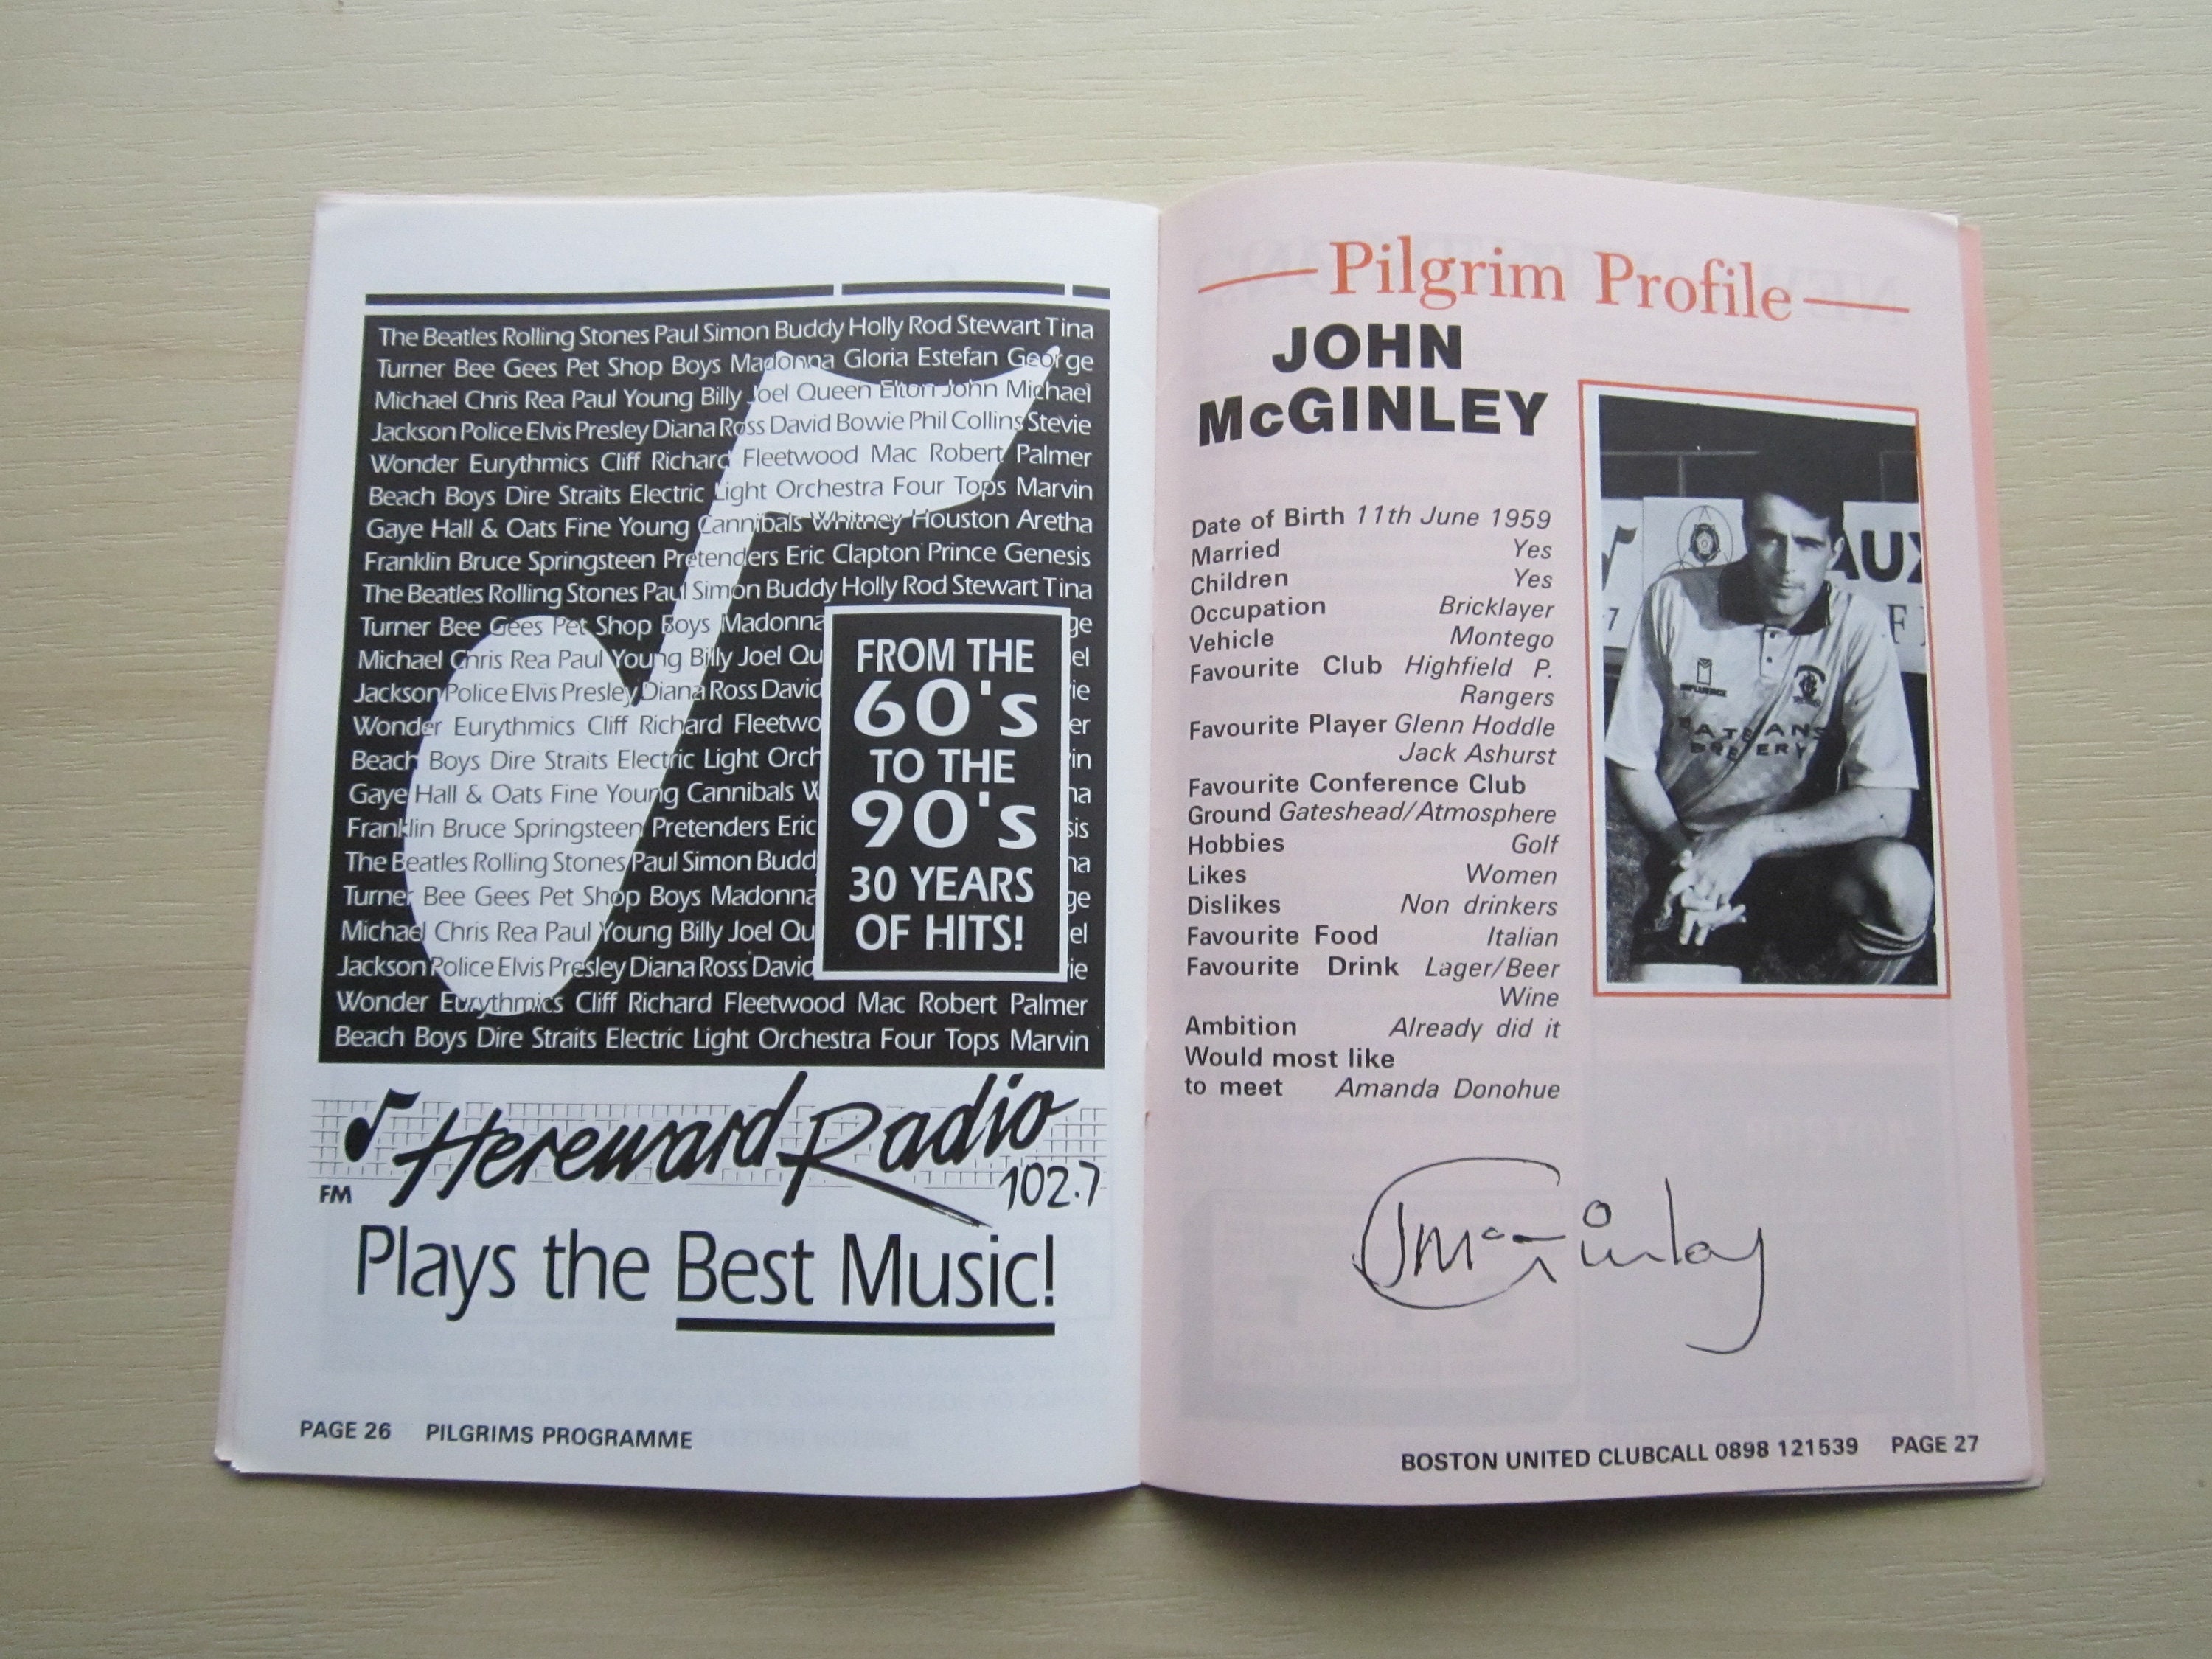 The Beatles Rolling Stones Paul Simon Buddy Holly Rod Stewart Tina
Turner Bee Gees Pet Shop Boys Madonna Gloria Estefan George
Michael Chris Rea Paul Young Billy Joel Queen Elton John Michael
Jackson Police Elvis Presley Diana Ross David Bowie Phil Collins Stevie
Wonder Eurythmics Cliff Richard Fleetwood Mac Robert Palmer
Beach Boys Dire Straits Electric Light Orchestra Four Tops Marvin
Gaye Hall & Oats Fine Young Cannibals Whitney Houston Aretha
Franklin Bruce Springsteen Pretenders Eric Clapton Prince Genesis
The Beatles Rolling Stones Paul Simon Buddy Holly Rod Stewart Tina
Turner Bee Gees Pet Shop Boys Madonna ge
Michael Chris Rea Paul Young Billy Joel Qu el
Jackson Police Elvis Presley Diana Ross David ie
Wonder Eurythmics Cliff Richard Fleetwo er
Beach Boys Dire Straits Electric Light Orch in
Gaye Hall & Oats Fine Young Cannibals W na
Franklin Bruce Springsteen Pretenders Eric sis
The Beatles Rolling Stones Paul Simon Budd na
Turner Bee Gees Pet Shop Boys Madonna ge
Michael Chris Rea Paul Young Billy Joel Qu el
Jackson Police Elvis Presley Diana Ross David ie
Wonder Eurythmics Cliff Richard Fleetwood Mac Robert Palmer
Beach Boys Dire Straits Electric Light Orchestra Four Tops Marvin
FROM THE
60's
TO THE
90's
30 YEARS
OF HITS!
Hereward Radio
FM 102.7
Plays the Best Music!
PAGE 26 PILGRIMS PROGRAMME
Pilgrim Profile
JOHN
McGINLEY
Date of Birth 11th June 1959
Married Yes
Children Yes
Occupation Bricklayer
Vehicle Montego
Favourite Club Highfield P.
Rangers
Favourite Player Glenn Hoddle
Jack Ashurst
Favourite Conference Club
Ground Gateshead/Atmosphere
Hobbies Golf
Likes Women
Dislikes Non drinkers
Favourite Food Italian
Favourite Drink Lager/Beer
Wine
Ambition Already did it
Would most like
to meet Amanda Donohue
AUX
F
7
INFLUENCE
BATEMANS
BREWERY
J McGinlay
BOSTON UNITED CLUBCALL 0898 121539 PAGE 27